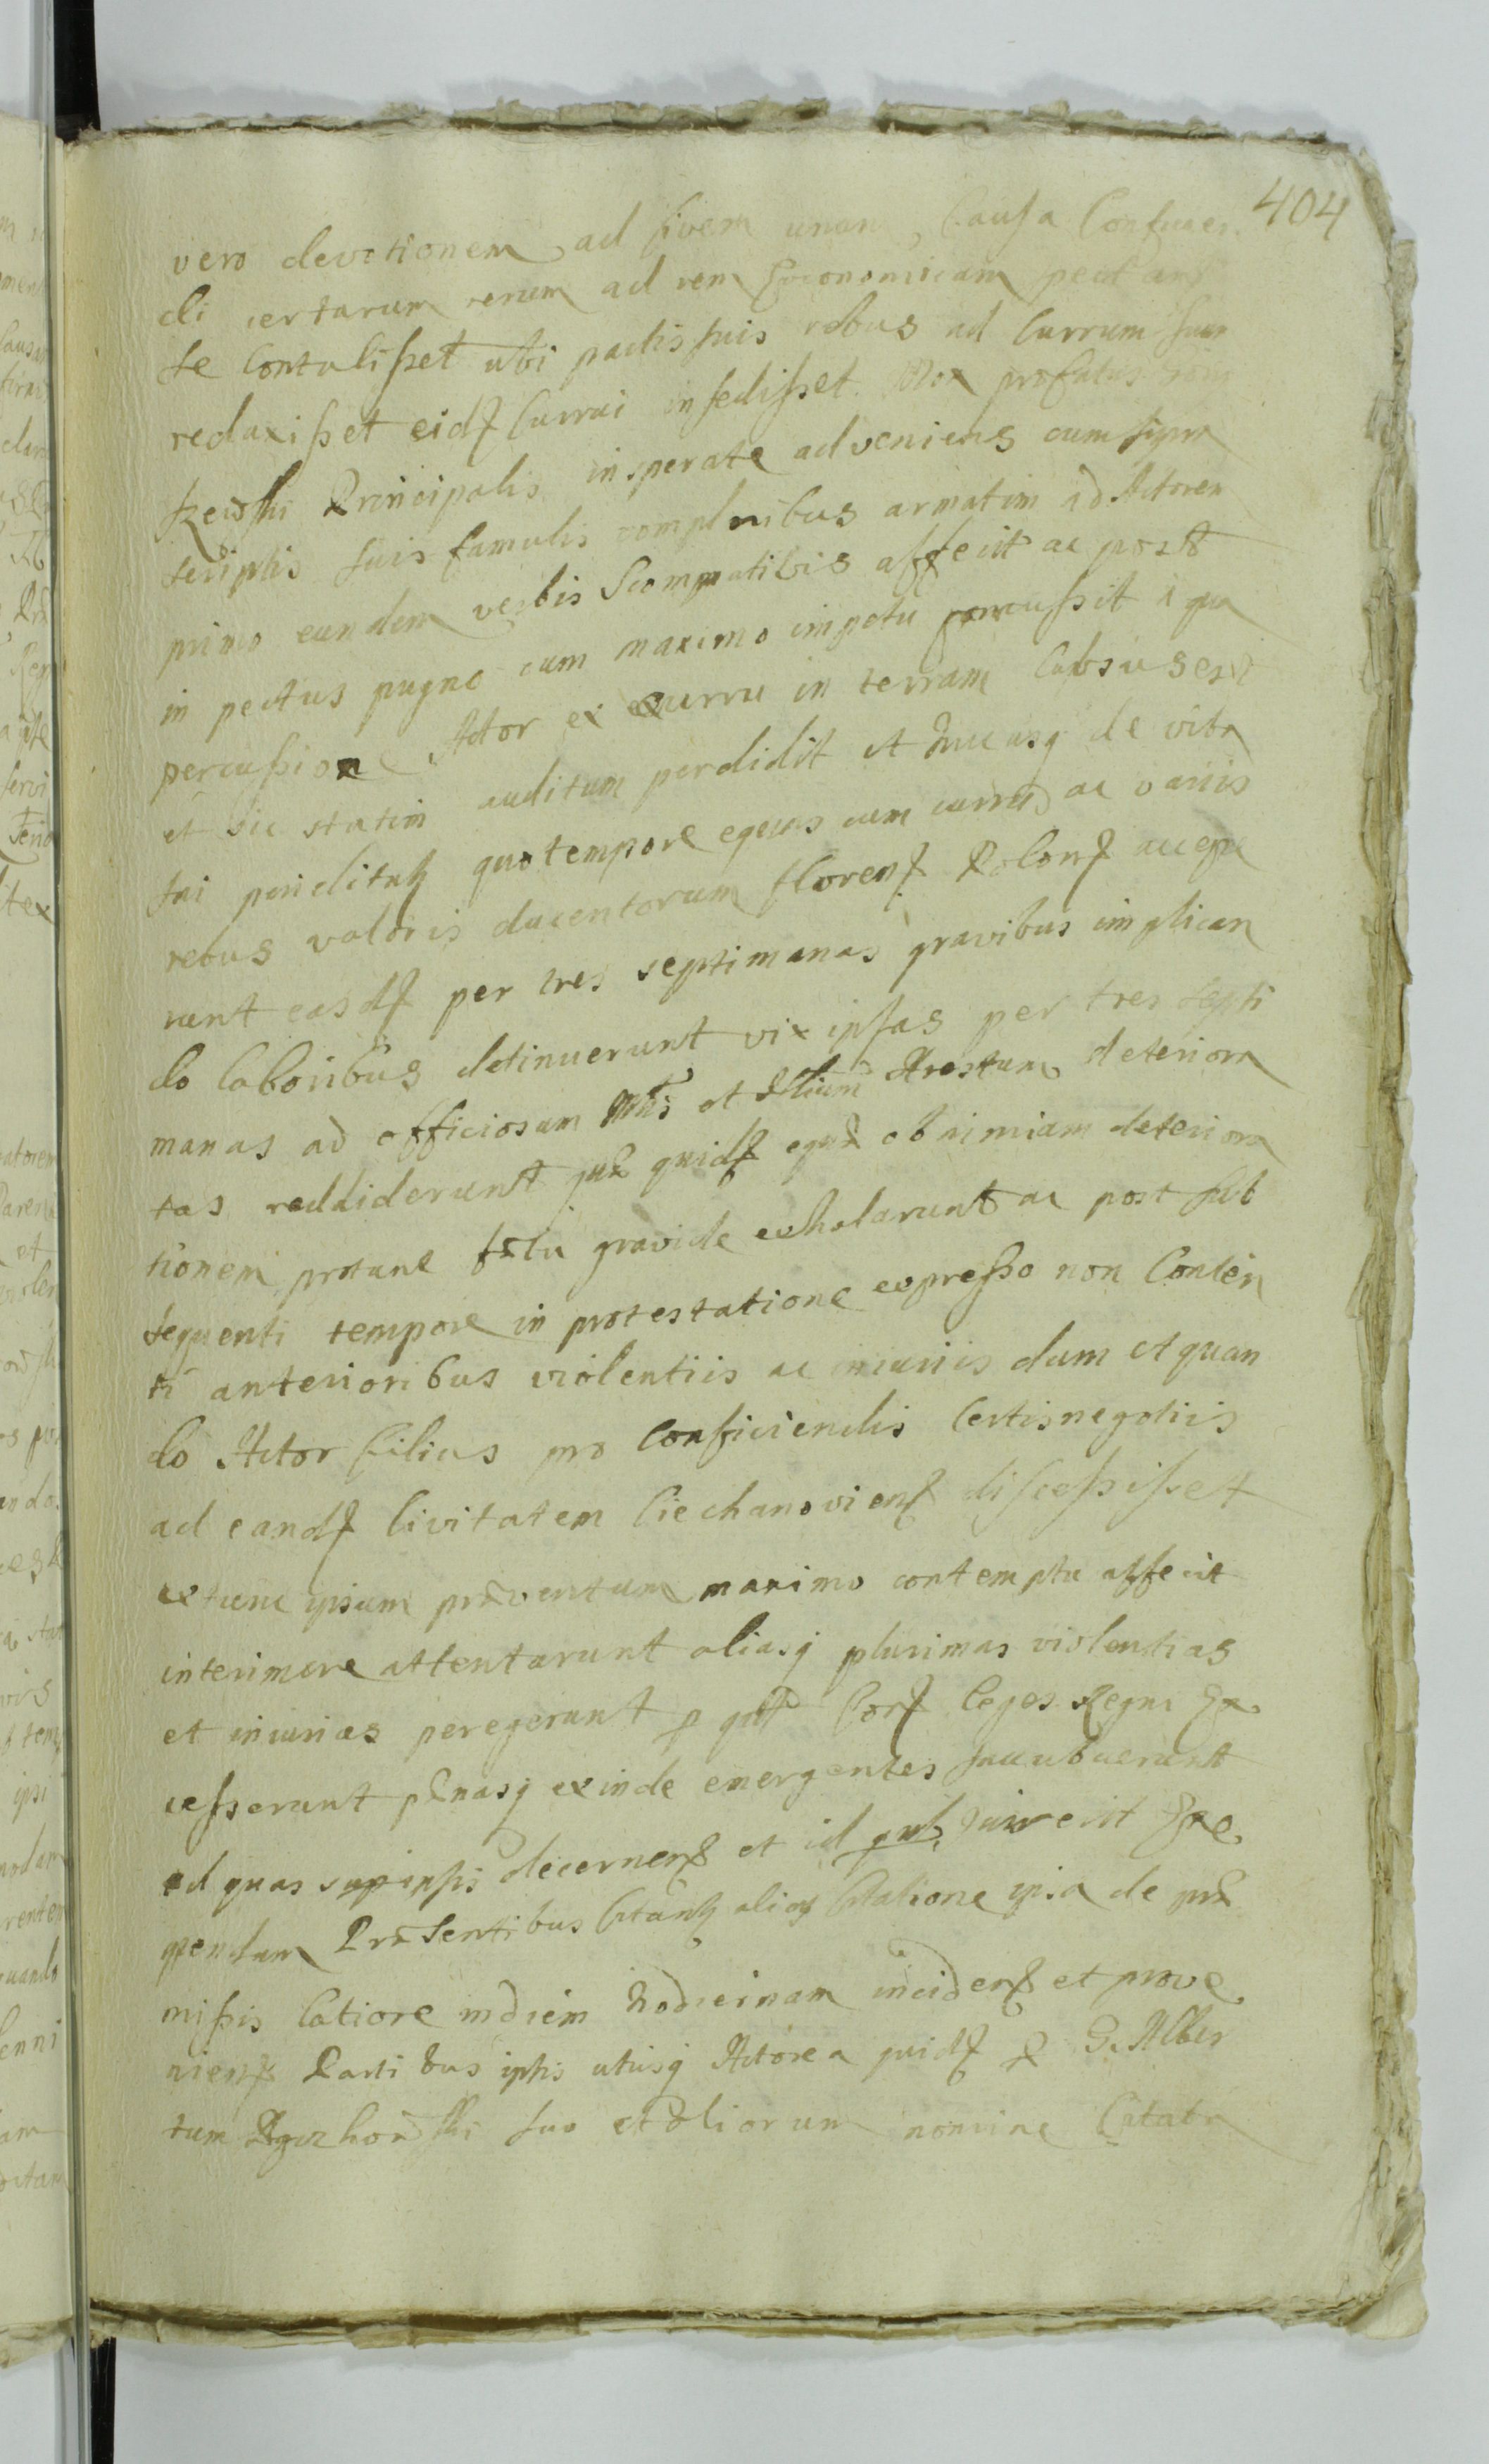 404
vero devotionem ad civem unam, Causa Conficien
di certarum rerum ad rem Oeconomicam pectant
se Contulisset ubi pactis suis rebus ad Currum suum
redaxisset eidq Currui insedisset Mox prefatus
Principalis insperate adveniens cum supra
scriptis suis famulis compluribus armatim ad Actorem
primo eundem verbis Scommatibis affecit ac post
in pectus pugno cum maximo impetu percussit à qua
percussione Actor ex curru in terram labsus est
et sic statim auditum perdidit et hucusq de vita
sui periclitatq quo tempore equas cum curru ac variis
rebus valoris ducentorum florenq Polonq accepe
runt easdq per tres septimanas gravibus implican
do laboribus detinuerunt vix ipsas per tres septi
manas ad officiosam et Arestum deteriora
tas reddiderunt quidq ob nimiam deteriora
tionem protunc fætu gravide exhalarunt ac post sub
sequenti tempore in protestatione expresso non Conten
ti anterioribus violentiis ac iniuriis dum et quan
do Actor filius pro Conficiendis Certis negotiis
ad eandq Civitatem Ciechanovienq discessisset
extunc ipsum præventum maximo contemptu affecit
interimere attentarunt aliasq plurimas violentias
et iniurias peregerunt p Leges Regni Ex
cesserunt pænasq exinde emergentes succubuerunt
ad quas decernenq et id
pendum Præsentibus Citatione ipsa de præ
missis latiore indiem hodiernam incidenq et prove
nienq Partibus iptis utrisq Actorea quidq p G. Alber
tum suo et aliorum nomine Citata